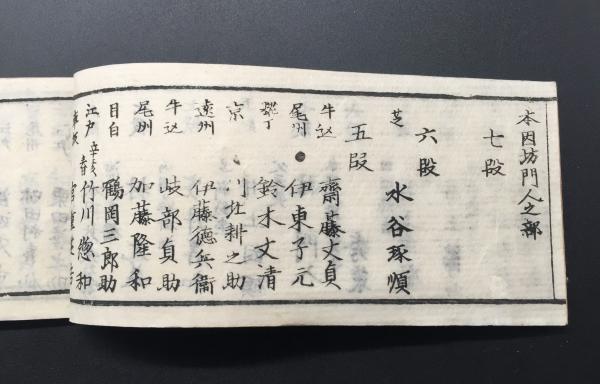 本因坊門人之部
七段
六段
芝 水谷琢順
五段
牛込 齋藤丈貞
尾州 伊東子元
糀丁 鈴木丈清
京 川北耕之助
遠州 伊藤德兵衞
牛込 岐部貞助
尾州 加藤隆和
目白 鶴岡三郎助
江戸 竹川惣和